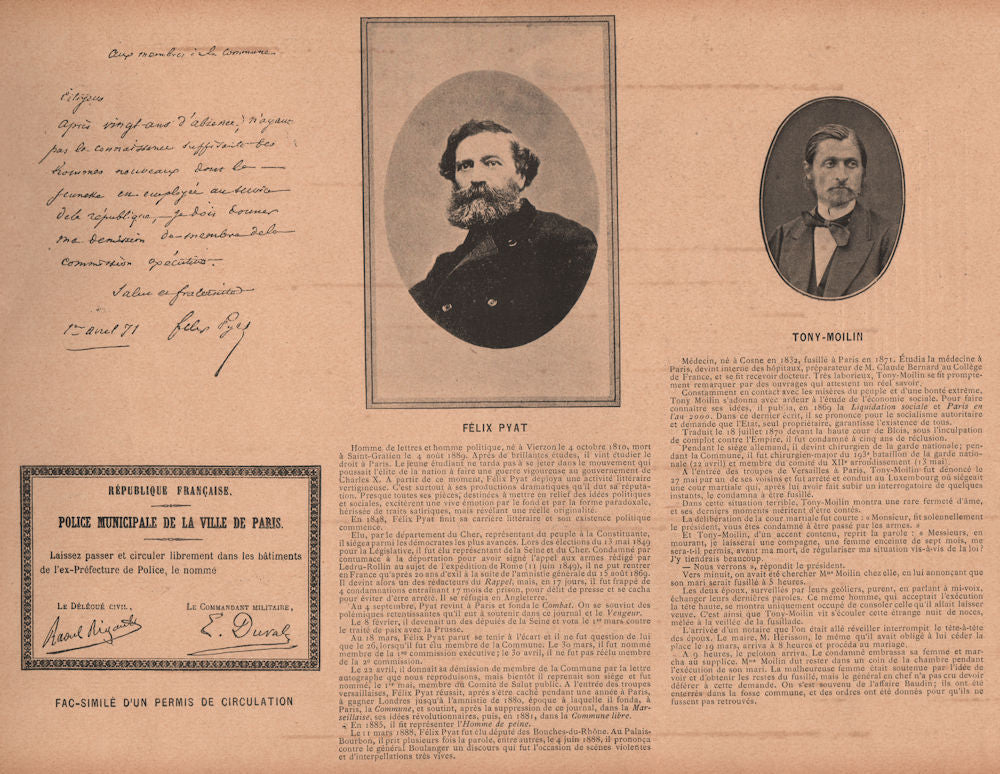 Aux membres de la Commune
Citoyens
Après vingt ans d'absence, n'ayant
pas la connaissance suffisante des
hommes nouveaux dont la
jeunesse en employée au service
de la république, je dois donner
ma démission de membre de la
commission exécutive.
Salut et fraternité
1er avril 71 Félix Pyat
RÉPUBLIQUE FRANÇAISE.
POLICE MUNICIPALE DE LA VILLE DE PARIS.
Laissez passer et circuler librement dans les bâtiments
de l'ex-Préfecture de Police, le nommé
LE DÉLÉGUÉ CIVIL, LE COMMANDANT MILITAIRE,
Raoul Rigault E. Duval
FAC-SIMILÉ D'UN PERMIS DE CIRCULATION
FÉLIX PYAT
Homme de lettres et homme politique, né à Vierzon le 4 octobre 1810, mort
à Saint-Gratien le 4 août 1889. Après de brillantes études, il vint étudier le
droit à Paris. Le jeune étudiant ne tarda pas à se jeter dans le mouvement qui
poussait l'élite de la nation à faire une guerre vigoureuse au gouvernement de
Charles X. A partir de ce moment, Félix Pyat déploya une activité littéraire
vertigineuse. C'est surtout à ses productions dramatiques qu'il dut sa réputa-
tion. Presque toutes ses pièces, destinées à mettre en relief des idées politiques
et sociales, excitèrent une vive émotion par le fond et par la forme paradoxale,
hérissée de traits satiriques, mais révélant une réelle originalité.
En 1848, Félix Pyat finit sa carrière littéraire et son existence politique
commence.
Elu, par le département du Cher, représentant du peuple à la Constituante,
il siégea parmi les démocrates les plus avancés. Lors des élections du 13 mai 1849
pour la Législative, il fut élu représentant de la Seine et du Cher. Condamné par
contumace à la déportation pour avoir signé l'appel aux armes rédigé par
Ledru-Rollin au sujet de l'expédition de Rome (11 juin 1849), il ne put rentrer
en France qu'après 20 ans d'exil à la suite de l'amnistie générale du 15 août 1869.
Il devint alors un des rédacteurs du Rappel, mais, en 17 jours, il fut frappé de
4 condamnations entraînant 17 mois de prison, pour délit de presse et se cacha
pour éviter d'être arrêté. Il se réfugia en Angleterre.
Au 4 septembre, Pyat revint à Paris et fonda le Combat. On se souvint des
polémiques retentissantes qu'il eut à soutenir dans ce journal et le Vengeur.
Le 8 février, il devenait un des députés de la Seine et vota le 1er mars contre
le traité de paix avec la Prusse.
Au 18 mars, Félix Pyat parut se tenir à l'écart et il ne fut question de lui
que le 26, lorsqu'il fut élu membre de la Commune. Le 30 mars, il fut nommé
membre de la 1re commission exécutive; le 30 avril, il ne fut pas réélu membre
de la 2e commission.
Le 22 avril, il donnait sa démission de membre de la Commune par la lettre
autographe que nous reproduisons, mais bientôt il reprenait son siège et fut
nommé, le 1er mai, membre du Comité de Salut public. A l'entrée des troupes
versaillaises, Félix Pyat réussit, après s'être caché pendant une année à Paris,
à gagner Londres jusqu'à l'amnistie de 1880, époque à laquelle il fonda, à
Paris, la Commune, et soutint, après la suppression de ce journal, dans la Mar-
seillaise, ses idées révolutionnaires, puis, en 1881, dans la Commune libre.
En 1885, il fit représenter l'Homme de peine.
Le 11 mars 1888, Félix Pyat fut élu député des Bouches-du-Rhône. Au Palais-
Bourbon, il prit plusieurs fois la parole, entre autres, le 4 juin 1888, il prononça
contre le général Boulanger un discours qui fut l'occasion de scènes violentes
et d'interpellations très vives.
TONY-MOILIN
Médecin, né à Cosne en 1832, fusillé à Paris en 1871. Étudia la médecine à
Paris, devint interne des hôpitaux, préparateur de M. Claude Bernard au Collège
de France, et se fit recevoir docteur. Très laborieux, Tony-Moilin se fit prompte-
ment remarquer par des ouvrages qui attestent un réel savoir.
Constamment en contact avec les misères du peuple et d'une bonté extrême,
Tony Moilin s'adonna avec ardeur à l'étude de l'économie sociale. Pour faire
connaître ses idées, il publia, en 1869 la Liquidation sociale et Paris en
l'an 2000. Dans ce dernier écrit, il se prononce pour le socialisme autoritaire
et demande que l'Etat, seul propriétaire, garantisse l'existence de tous.
Traduit le 18 juillet 1870 devant la haute cour de Blois, sous l'inculpation
de complot contre l'Empire, il fut condamné à cinq ans de réclusion.
Pendant le siège allemand, il devint chirurgien de la garde nationale; pen-
dant la Commune, il fut chirurgien-major du 193e bataillon de la garde natio-
nale (22 avril) et membre du comité du XIIe arrondissement (13 mai).
A l'entrée des troupes de Versailles à Paris, Tony-Moilin fut dénoncé le
27 mai par un de ses voisins et fut arrêté et conduit au Luxembourg où siégeait
une cour martiale qui, après lui avoir fait subir un interrogatoire de quelques
instants, le condamna à être fusillé.
Dans cette situation terrible, Tony-Moilin montra une rare fermeté d'âme,
et ses derniers moments méritent d'être contés.
La délibération de la cour martiale fut courte : « Monsieur, fit solennellement
le président, vous êtes condamné à être passé par les armes. »
Et Tony-Moilin, d'un accent contenu, reprit la parole : « Messieurs, en
mourant, je laisserai une compagne, une femme enceinte de sept mois, me
sera-t-il permis, avant ma mort, de régulariser ma situation vis-à-vis de la loi ?
J'y tiendrais beaucoup.
— Nous verrons », répondit le président.
Vers minuit, on avait été chercher Mme Moilin chez elle, en lui annonçant que
son mari serait fusillé à 8 heures.
Les deux époux, surveillés par leurs geôliers, purent, en parlant à mi-voix,
échanger leurs dernières paroles. Ce même homme, qui acceptait l'exécution
la tête haute, se montra uniquement occupé de consoler celle qu'il allait laisser
veuve. C'est ainsi que Tony-Moilin vit s'écouler cette étrange nuit de noces,
mêlée à la veillée de la fusillade.
L'arrivée d'un notaire que l'on était allé réveiller interrompit le tête-à-tête
des époux. Le maire, M. Hérisson, le même qu'il avait obligé à lui céder la
place le 19 mars, arriva à 8 heures et procéda au mariage.
A 9 heures, le peloton arriva. Le condamné embrassa sa femme et mar-
cha au supplice. Mme Moilin dut rester dans un coin de la chambre pendant
l'exécution de son mari. La malheureuse femme était soutenue par l'idée de
voir et d'obtenir les restes du fusillé, mais le général en chef n'a pas cru devoir
déférer à cette demande. On s'est souvenu de l'affaire Baudin; ils ont été
enterrés dans la fosse commune, et des ordres ont été donnés pour qu'ils ne
fussent pas retrouvés.